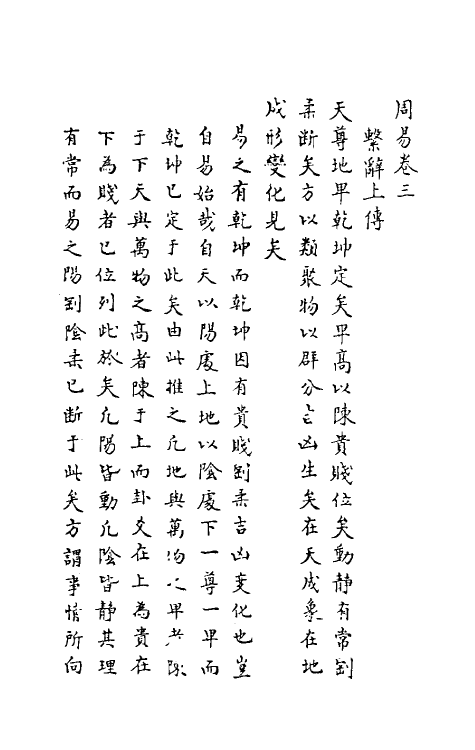 周易卷三
繫辭上傳
天尊地卑乾坤定矣卑高以陳貴賤位矣動靜有常剛
柔斷矣方以類聚物以群分吉凶生矣在天成象在地
成形變化見矣
易之有乾坤而乾坤因有貴賤剛柔吉凶变化也豈
自易始哉自天以陽處上地以陰處下一尊一卑而
乾坤已定于此矣由此推之凡地與萬物之卑者陳
于下天與萬物之高者陳于上而卦爻在上為貴在
下為賤者已位列此於矣凡陽皆動凡陰皆靜其理
有常而易之陽剛陰柔已断于此矣方謂事情所向